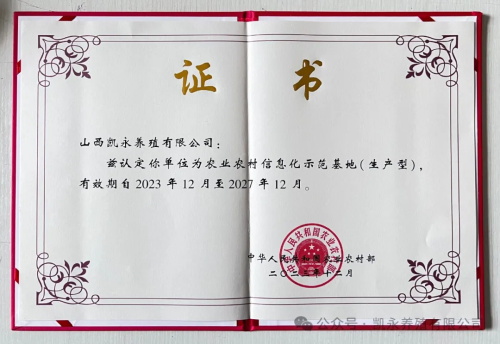 证 书
山西凯永养殖有限公司：
兹认定你单位为农业农村信息化示范基地（生产型），
有效期自 2023 年 12 月至 2027 年 12 月。
中华人民共和国农业农村部
二〇二三年十二月
中华人民共和国农业农村部
公众号·凯永养殖有限公司